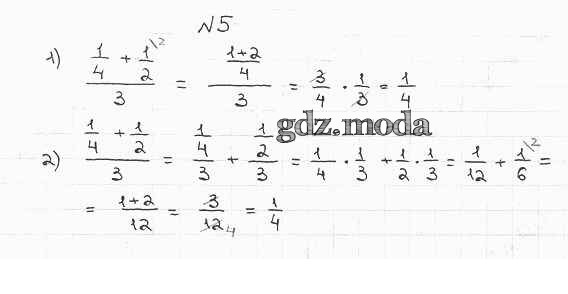 №5
1) (1/4 + 1/2\²)/3 = ((1+2)/4)/3 = 3/4 · 1/3 = 1/4
gdz.moda
2) (1/4 + 1/2)/3 = (1/4)/3 + (1/2)/3 = 1/4 · 1/3 + 1/2 · 1/3 = 1/12 + 1/6\² =
= (1+2)/12 = 3/12 4 = 1/4